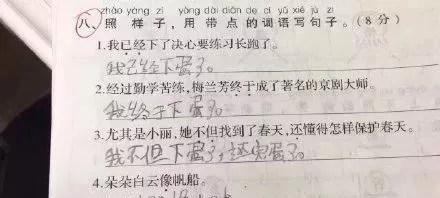 zhào yàng zǐ yòng dài diǎn de cí yǔ xiě jù zi
八、照样子,用带点的词语写句子。(8分)
1.我已经下了决心要练习长跑了。
我已经下蛋了。
2.经过勤学苦练,梅兰芳终于成了著名的京剧大师。
我终于下蛋了。
3.尤其是小丽,她不但找到了春天,还懂得怎样保护春天。
我不但下蛋了,还完蛋了。
4.朵朵白云像帆船。